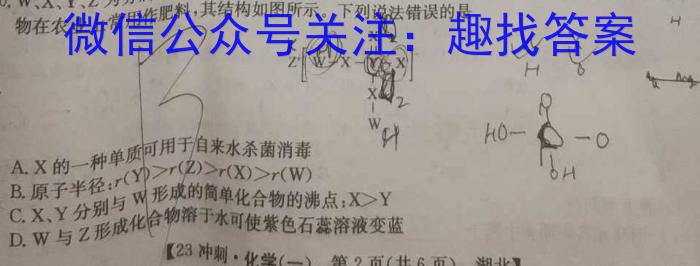 W、X、Y、Z
物在农 常用作肥料,其结构如图所示。下列说法错误的是
微信公众号关注：趣找答案
Z W-X- X
X
W
HO- -O
OH
A. X 的一种单质可用于自来水杀菌消毒
B. 原子半径:r(Y)>r(Z)>r(X)>r(W)
C. X、Y 分别与 W 形成的简单化合物的沸点:X>Y
D. W 与 Z 形成化合物溶于水可使紫色石蕊溶液变蓝
【23 冲刺·化学(一) 第 2 页(共 6 页) 湖北】